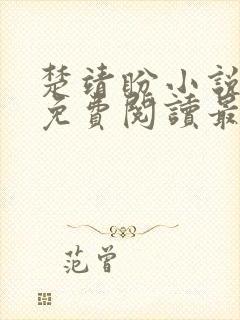 楚靖盼小說
免費閱讀最
范曾